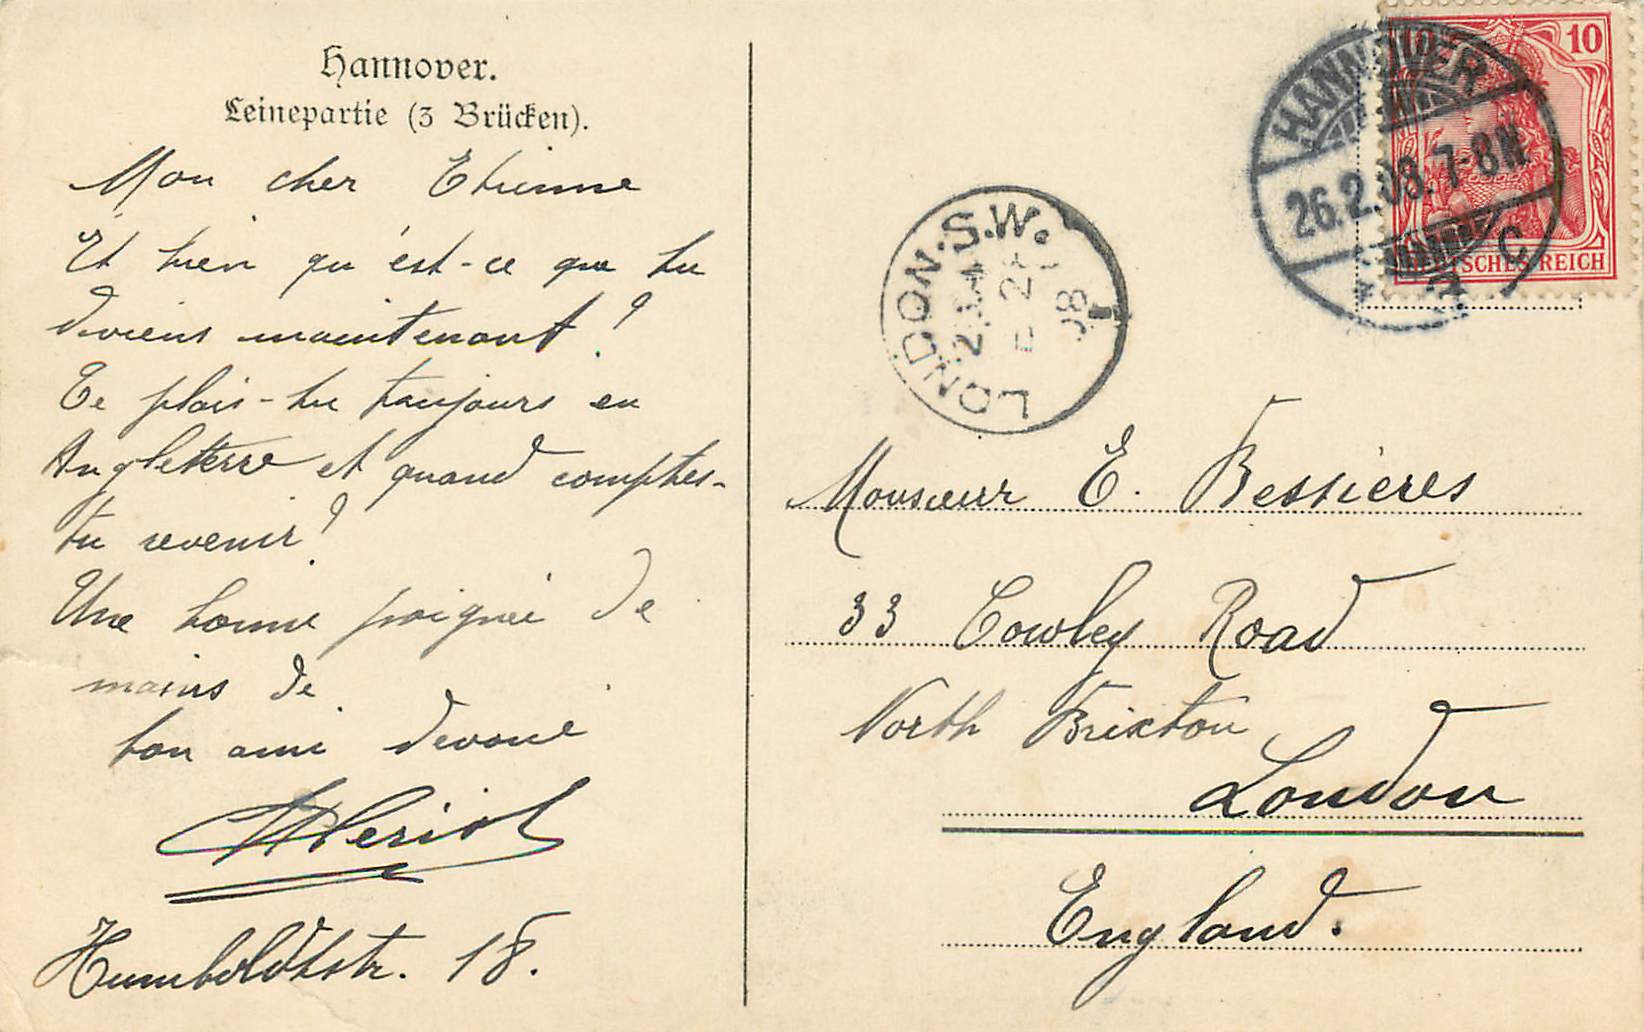 Hannover.
Leinepartie (3 Brücken).
Mon cher Etienne
Et bien qu'est-ce que tu
deviens maintenant?
Te plais-tu toujours en
Angleterre et quand comptes-
tu revenir?
Une bonne poignée de
mains de
ton ami devoué
Heriot
Humboldtstr. 18.
10
DEUTSCHES REICH
HANNOVER
26.2.08. 7-8N.
LONDON.S.W.
08
Monsieur E. Bessières
33 Cowley Road
North Brixton
London
England.